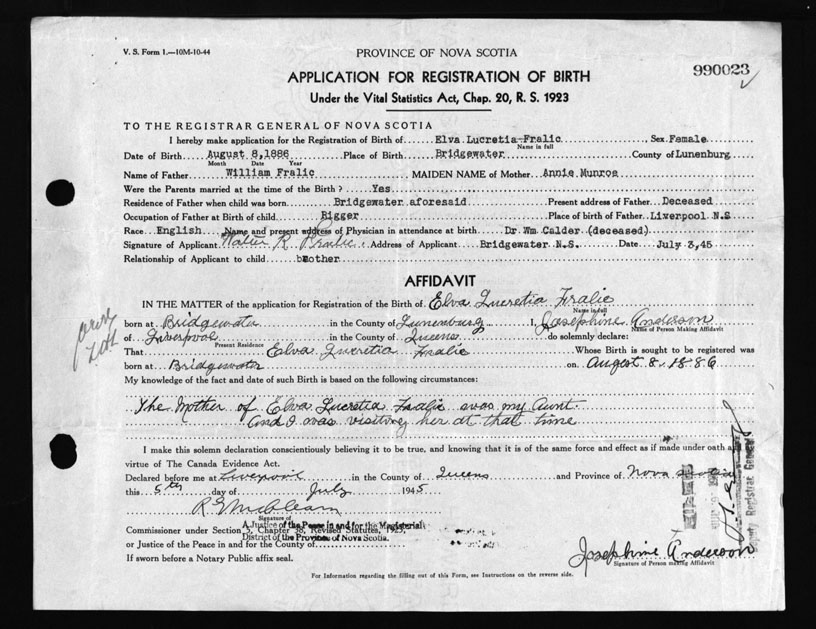 V. S. Form 1.—10M-10-44
PROVINCE OF NOVA SCOTIA
990023
APPLICATION FOR REGISTRATION OF BIRTH
Under the Vital Statistics Act, Chap. 20, R. S. 1923
TO THE REGISTRAR GENERAL OF NOVA SCOTIA
I hereby make application for the Registration of Birth of Elva Lucretia Fralic Sex Female
Name in full
Date of Birth August 8,1886 Place of Birth Bridgewater County of Lunenburg
Month Date Year
Name of Father William Fralic MAIDEN NAME of Mother Annie Munroe
Were the Parents married at the time of the Birth? Yes
Residence of Father when child was born Bridgewater aforesaid Present address of Father Deceased
Occupation of Father at Birth of child Rigger Place of birth of Father Liverpool N.S
Race English Name and present address of Physician in attendance at birth Dr. Wm Calder (deceased)
Signature of Applicant Walter R. Fralic Address of Applicant Bridgewater N.S. Date July 3,45
Relationship of Applicant to child brother
AFFIDAVIT
IN THE MATTER of the application for Registration of the Birth of Elva Lucretia Fralic
Name in full
born at Bridgewater in the County of Lunenburg I, Josephine Anderson
Name of Person Making Affidavit
of Liverpool in the County of Queens do solemnly declare:
Present Residence
That Elva Lucretia Fralic Whose Birth is sought to be registered was
born at Bridgewater on August 8, 1886
My knowledge of the fact and date of such Birth is based on the following circumstances:
The Mother of Elva Lucretia Fralic was my Aunt.
And I was visiting her at that time
I make this solemn declaration conscientiously believing it to be true, and knowing that it is of the same force and effect as if made under oath
virtue of The Canada Evidence Act.
Declared before me at Liverpool in the County of Queens and Province of Nova Scotia
this 5th day of July 1945
Signature of
Commissioner under Section 5, Chapter 38, Revised Statutes, 1923,
A Justice of the Peace in and for the Magisterial
District of the Province of Nova Scotia.
or Justice of the Peace in and for the County of
If sworn before a Notary Public affix seal.
Josephine Anderson
Signature of Person making Affidavit
For Information regarding the filling out of this Form, see Instructions on the reverse side.
Deputy Registrar General